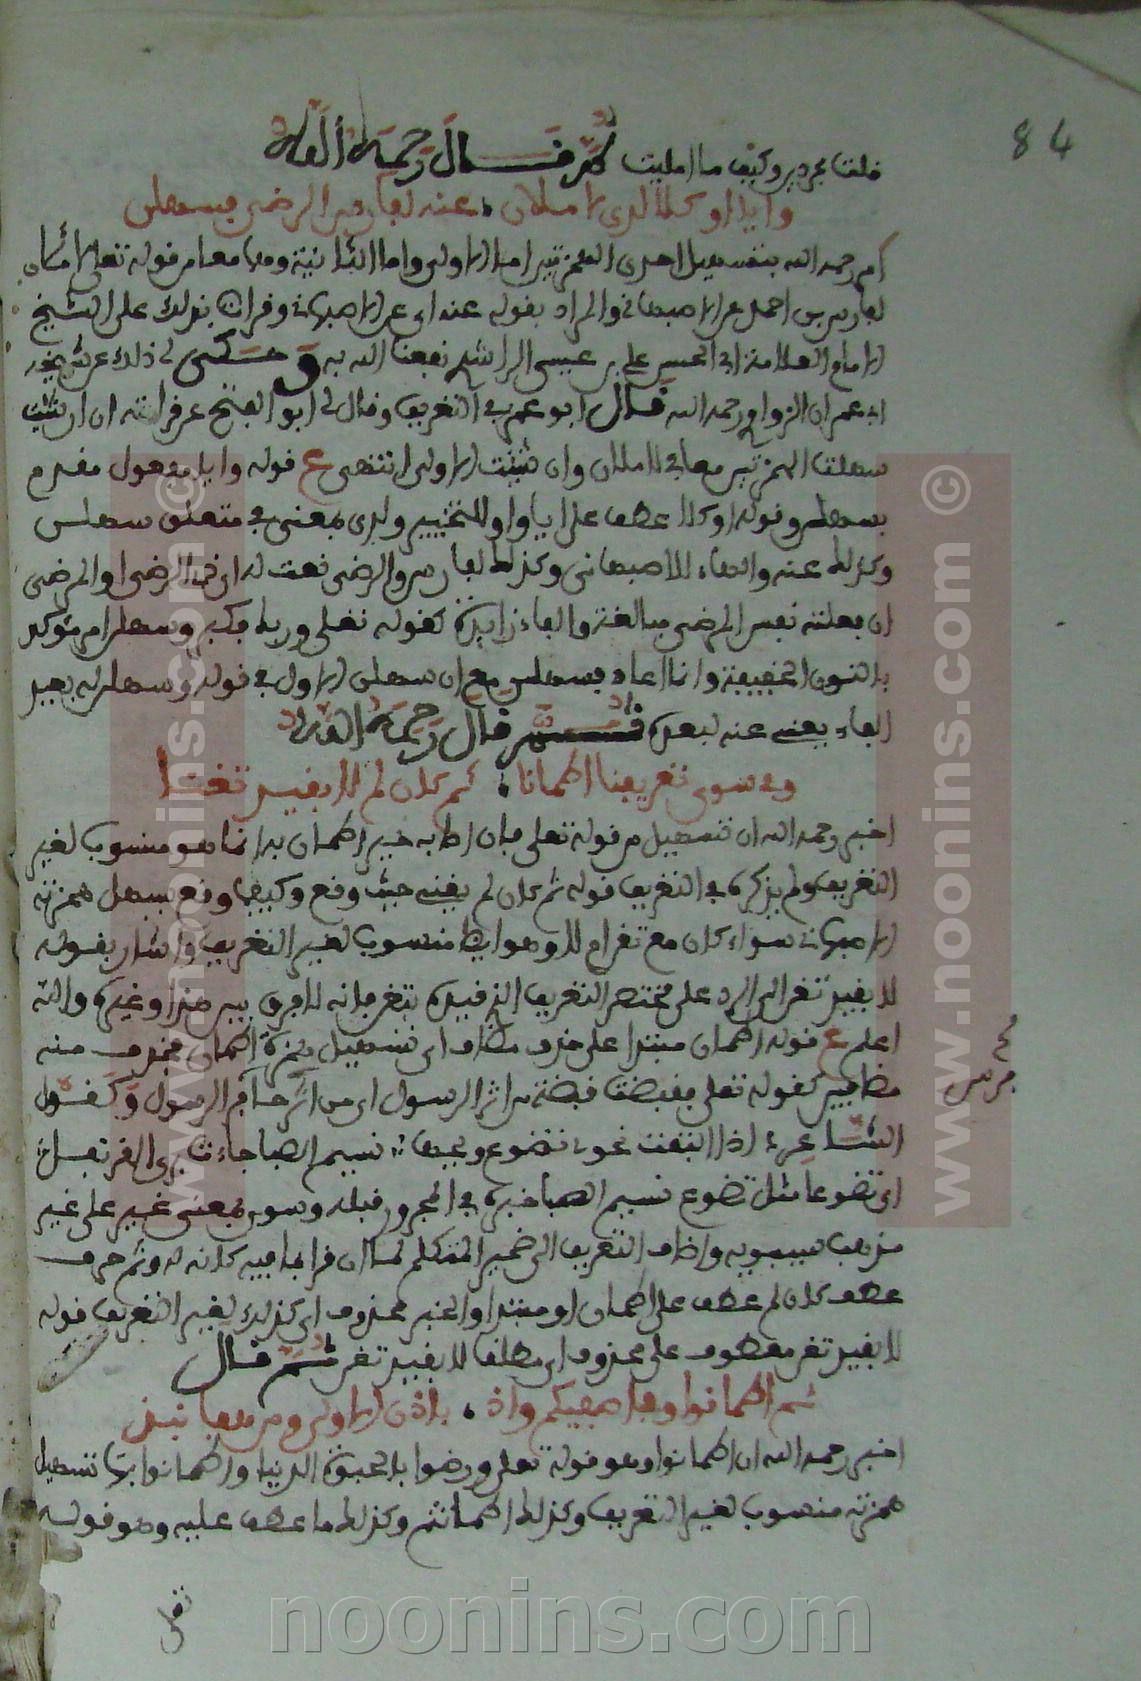 84
قلت بجرير وكيف ما امليت ثم قال رحمه الله
وايذا او كلا لدى لاملان عنه لفارس الرضى فسهلن
رحمه الله بتسهيل احدى الهمزتين اما الاولى واما الثانية وهما معا من قوله تعلى لاملان
لفارس بن احمد عن الاصبهاني والمراد بقوله عنه اي عن الاصبهاني وقرات بذلك على الشيخ
الامام العلامة ابي الحسن علي بن عيسى الراشدي نفعنا الله به وحكى لي ذلك عن شيخه
ابي عمران الزواوي رحمه الله قال ابو عمرو في التعريف وقال لي ابو الفتح عن قراءته ان شئت
سهلت الهمزتين معا في لاملان وان شئت الاولى انتهى ع قوله وايا مفعول مقدم
بسهلن وقوله او كلا عطف على ايا واو للتخيير ولدى بمعنى في متعلق بسهلن
وكذلك عنه والهاء للاصبهاني وكذلك لفارس والرضى نعت له اي ذي الرضى او المرضى
ان جعلته نفس المرضى مبالغة والفاء زايدة كقوله تعلى وربك فكبر وسهلن امر مؤكد
بالنون الخفيفة وانما اعاد فسهلن مع ان سهلن الاول في قوله وسهلن له بعيد
الفاء يعني عنه لبعده ثم قال رحمه الله
وفي سوى تعريفنا اطمانا ثم كان لم لا بقيد تغنا
اخبر رحمه الله ان تسهيل من قوله تعلى فان اصابه خير اطمان به انما هو منسوب لغير
التعريف ولم يذكره في التعريف قوله ثم كان لم يعني حيث وقع وكيف وقع بتسهيل همزته
الاصبهاني سواء كان مع تغن ام لا وهو ايضا منسوب لغير التعريف واشار بقوله
لا بقيد تغن الى الرد على مختصر التعريف الذي قيده بتغن فانه لا فرق بين هذا وغيره والله
اعلم ع قوله اطمان مبتدا على حذف مضاف اي تسهيل همزة اطمان فحذف منه
مضافين كقوله تعلى فقبضت قبضة من اثر الرسول اي من اثر حافر الرسول وكقول
الشاعر اذا التفتت نحوي تضوع ريحها نسيم الصبا جاءت بريا القرنفل
اي تضوعا مثل تضوع نسيم الصبا خبره في المجرور قبله وسوى بمعنى غير على غير
مذهب سيبويه واضاف التعريف الى ضمير المتكلم لما ان قرا بما فيه كانه له وثم حرف
عطف كان لم عطف على اطمان او مبتدا والخبر محذوف اي كذلك لغير التعريف قوله
لا بقيد تغن معطوف على محذوف اي مطلقا لا بقيد تغن ثم قال
ثم اطمانوا وفاصفيكم واذ باذن الاولى ومن بها نبذ
اخبر رحمه الله ان اطمانوا وهو قوله تعلى ورضوا بالحيوة الدنيا واطمانوا بها تسهيل
همزته منسوب لغير التعريف وكذلك اطماننتم وكذلك ما عطف عليه وهو قوله
www.noonins.com ©
www.noonins.com ©
noonins.com